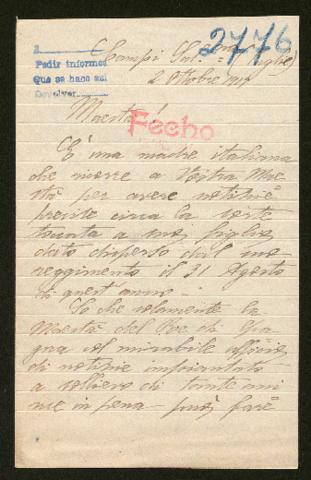 2776
Pedir informes
Que se hace así
Devolver
Campi Sal. (Puglie)
2 Ottobre
Maestà!
Fecho
È una madre italiana
che ricorre a Vostra Mae
stà per avere notizie
precise circa la sorte
toccata a suo figlio
dato disperso dal suo
reggimento il 31 Agosto
di quest'anno.
So che solamente la
Maestà del Re di Spa
gna col mirabile ufficio
di notizie impiantato
a sollievo di tante ani
me in pena può fare